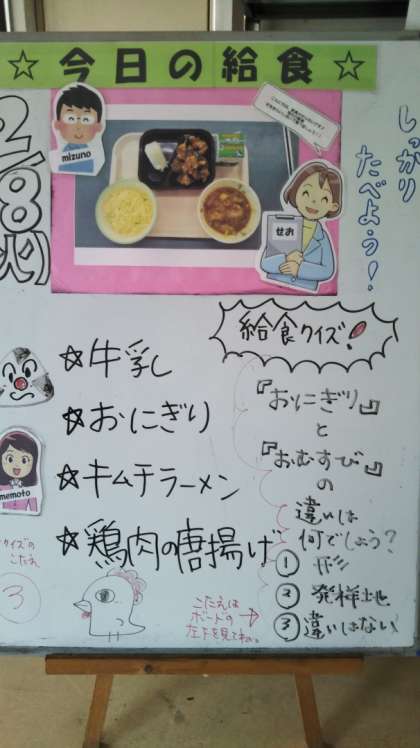 ☆今日の給食☆
2/8(火)
mizuno
せお
しっかり
たべよう！
☆牛乳
☆おにぎり
☆キムチラーメン
☆鶏肉の唐揚げ
給食クイズ！
『おにぎり』
と
『おむすび』
の
違いは
何でしょう？
① 形
② 発祥地
③ 違いはない
こたえは
ボードの→
左下を見てね。
memoto
クイズの
こたえ
3